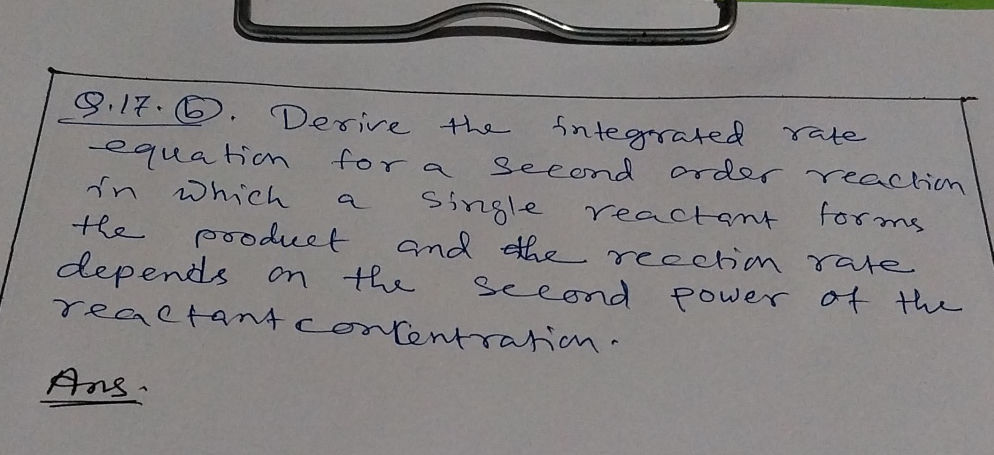 Q.17.(b). Derive the integrated rate
equation for a second order reaction
in which a single reactant forms
the product and the reection rate
depends on the second power of the
reactant concentration.
Ans.